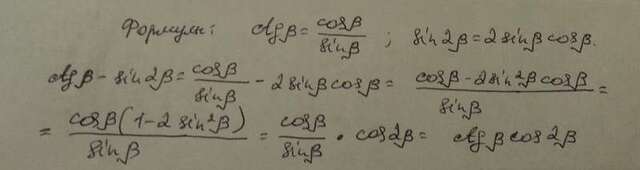 Формулы: ctgβ = cosβ/sinβ ; sin2β = 2sinβcosβ.
ctgβ - sin2β = cosβ/sinβ - 2sinβcosβ = (cosβ - 2sin²βcosβ)/sinβ =
= cosβ(1 - 2sin²β)/sinβ = cosβ/sinβ · cos2β = ctgβcos2β